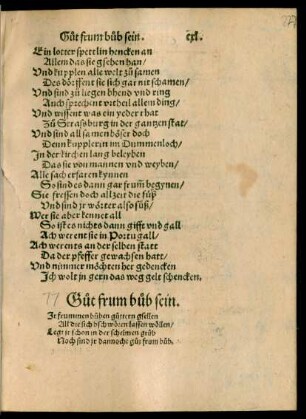 Gůt frum bůb sein. cxl.
Ein lotter spettlin hencken an
Allem das sie gsehen han/
Vnd kupplen alle welt zů samen
Des dörffent sie sich gar nit schamen/
Vnd sind zů liegen bhend vnd ring
Auch sprechent vrtheil allem ding/
Vnd wissent was ein yeder hat
Zů Straßburg in der gantzen stat/
Vnd sind all samen böser doch
Denn kupplerin im Dummenloch/
In der kirchen lang beleyben
Das sie von mannen vnd weyben/
Alle sach erfaren kynnen
So sind es dann gar frum begynen/
Sie fressen doch allzeit die füß
Vnd sind jr wörter also süß/
Wer sie aber kennet all
So ist es nichts dann gifft vnd gall
Ach werent sie in Portugall/
Ach werents an der selben statt
Da der pfeffer gewachsen hatt/
Vnd nimmer möchten her gedencken
Ich wolt jn gern das weg gelt schencken.
Gůt frum bůb sein.
Ir frummen bůben gůttern gsellen
All die sich bschwören lassen wöllen/
Legt jr schon in der schelmen grůb
Noch sind jr dannocht gůt frum bůb.